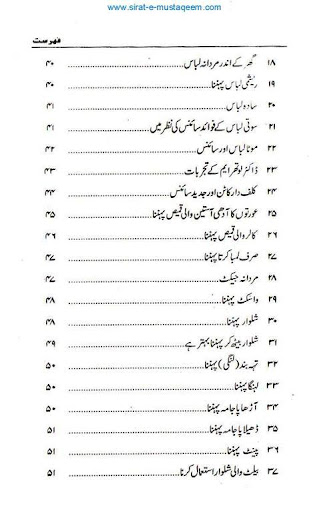 www.sirat-e-mustaqeem.com
فہرست
۱۸ گھر کے اندر مردانہ لباس ۴۰
۱۹ ریشمی لباس پہننا ۴۰
۲۰ سادہ لباس ۴۱
۲۱ سوتی لباس کے فوائد سائنس کی نظر میں ۴۱
۲۲ موٹا لباس اور سائنس ۴۲
۲۳ ڈاکٹر لوتھر ایم کے تجربات ۴۳
۲۴ کلف دار کاٹن اور جدید سائنس ۴۴
۲۵ عورتوں کا آدھی آستین والی قمیص پہننا ۴۵
۲۶ کالر والی قمیص پہننا ۴۶
۲۷ صرف لمبا کرتا پہننا ۴۷
۲۸ مردانہ جیکٹ ۴۷
۲۹ واسکٹ پہننا ۴۸
۳۰ شلوار پہننا ۴۸
۳۱ شلوار بیٹھ کر پہننا بہتر ہے ۴۹
۳۲ تہہ بند (لنگی) پہننا ۵۰
۳۳ لہنگا پہننا ۵۰
۳۴ آڑھا پاجامہ پہننا ۵۰
۳۵ ڈھیلا پاجامہ پہننا ۵۱
۳۶ پینٹ پہننا ۵۱
۳۷ بیلٹ والی شلوار استعمال کرنا ۵۱